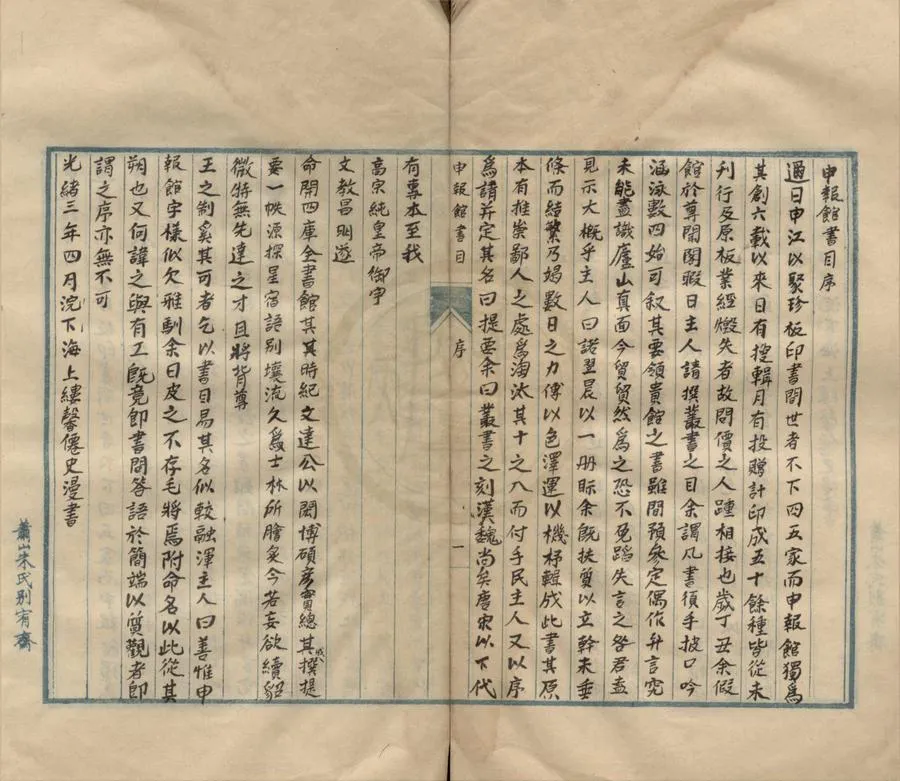 申報館書目序
邇日申江以聚珍板印書問世者不下四五家而申報館獨爲
其創六載以來日有搜輯月有投贈計印成五十餘種皆從未
刊行及原板業經燬失者故問價之人踵相接也歲丁丑余假
館於尊聞閣暇日主人請撰叢書之目余謂凡書須手披口吟
涵泳數四始可叙其要領貴館之書雖間預參定偶作弁言究
未能盡識廬山真面今貿貿然爲之恐不免蹈失言之咎君盍
見示大概乎主人曰諾翌晨以一册眎余余旣扶質以立幹未垂
條而結繁乃竭數日之力傅以色澤運以機杼輯成此書其原
本有推崇鄙人之處爲淘汰其十之八而付手民主人又以序
爲請并定其名曰提要余曰叢書之刻漢魏尚矣唐宋以下代
申報館書目 序 一
有專本至我
高宗純皇帝御宇
文教昌明遂
命開四庫全書館其時紀文達公以閎博碩彥實總其成撰提
要一帙源探星宿語別壤流久爲士林所膾炙今若妄欲續貂
微特無先達之才且將背尊
王之制奚其可者乞以書目易其名似較融渾主人曰善惟申
報館字樣似欠雅馴余曰皮之不存毛將焉附命名以此從其
朔也又何諱之與有工旣竟即書問答語於簡端以質觀者即
謂之序亦無不可
光緒三年四月浣下海上縷馨僊史漫書
蕭山朱氏別宥齋